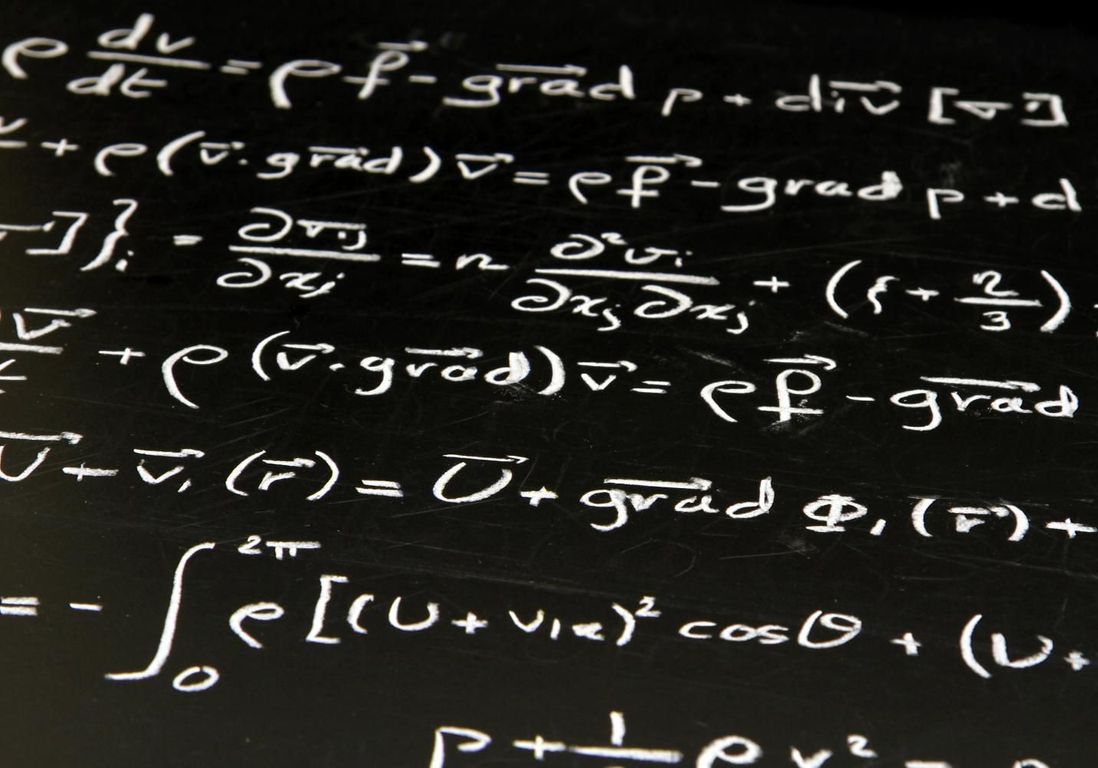 ρ dv/dt = ρ f⃗ - grad⃗ p + div⃗ [σ']
+ ρ (v⃗ . grad⃗) v⃗ = ρ f⃗ - grad p + d
]}ᵢ = ∂σᵢⱼ/∂xⱼ = η ∂²vᵢ/∂xⱼ∂xⱼ + (ζ + η/3)
v⃗ + ρ (v⃗ . grad⃗) v⃗ = ρ f⃗ - grad⃗
U⃗ + v⃗₁ (r⃗) = U⃗ + grad⃗ Φ₁ (r⃗) +
= - ∫₀²π ρ [(U + v₁ₓ)² cosθ + (U +
p + 1 ρ v² =